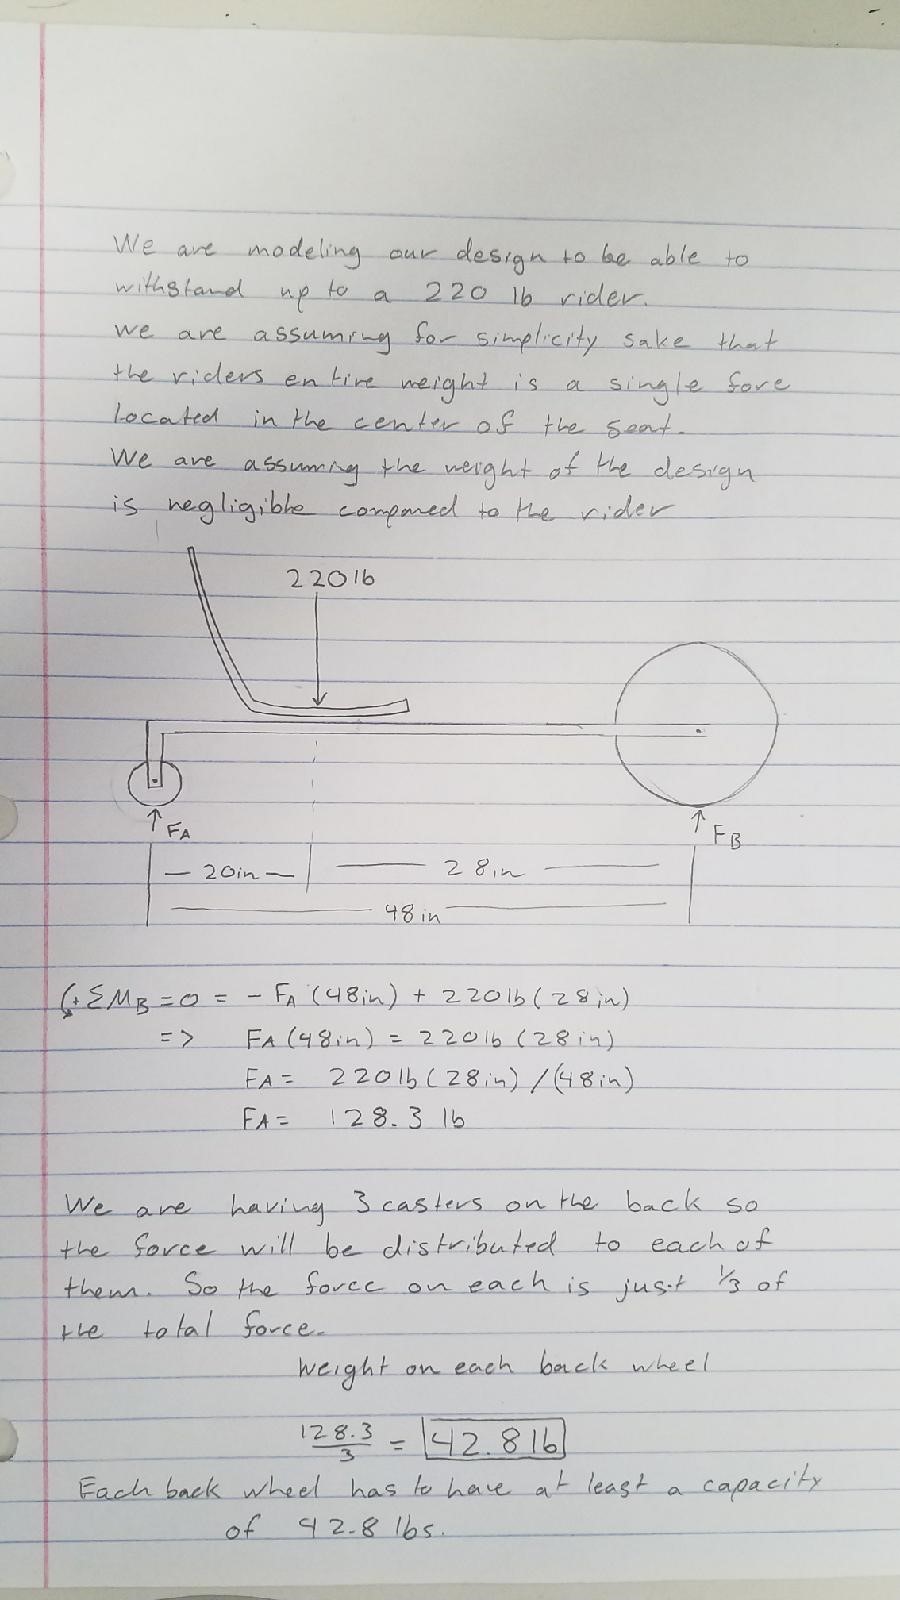 We are modeling our design to be able to
withstand up to a 220 lb rider.
we are assuming for simplicity sake that
the riders entire weight is a single force
located in the center of the seat.
We are assuming the weight of the design
is negligible compared to the rider
220 lb
FA
FB
20in
28in
48in
(+ ΣMB = 0 = - FA (48in) + 220lb (28in)
=> FA (48in) = 220lb (28in)
FA = 220lb (28in) / (48in)
FA = 128.3 lb
We are having 3 casters on the back so
the force will be distributed to each of
them. So the force on each is just 1/3 of
the total force.
Weight on each back wheel
128.3/3 = 42.8 lb
Each back wheel has to have at least a capacity
of 42.8 lbs.